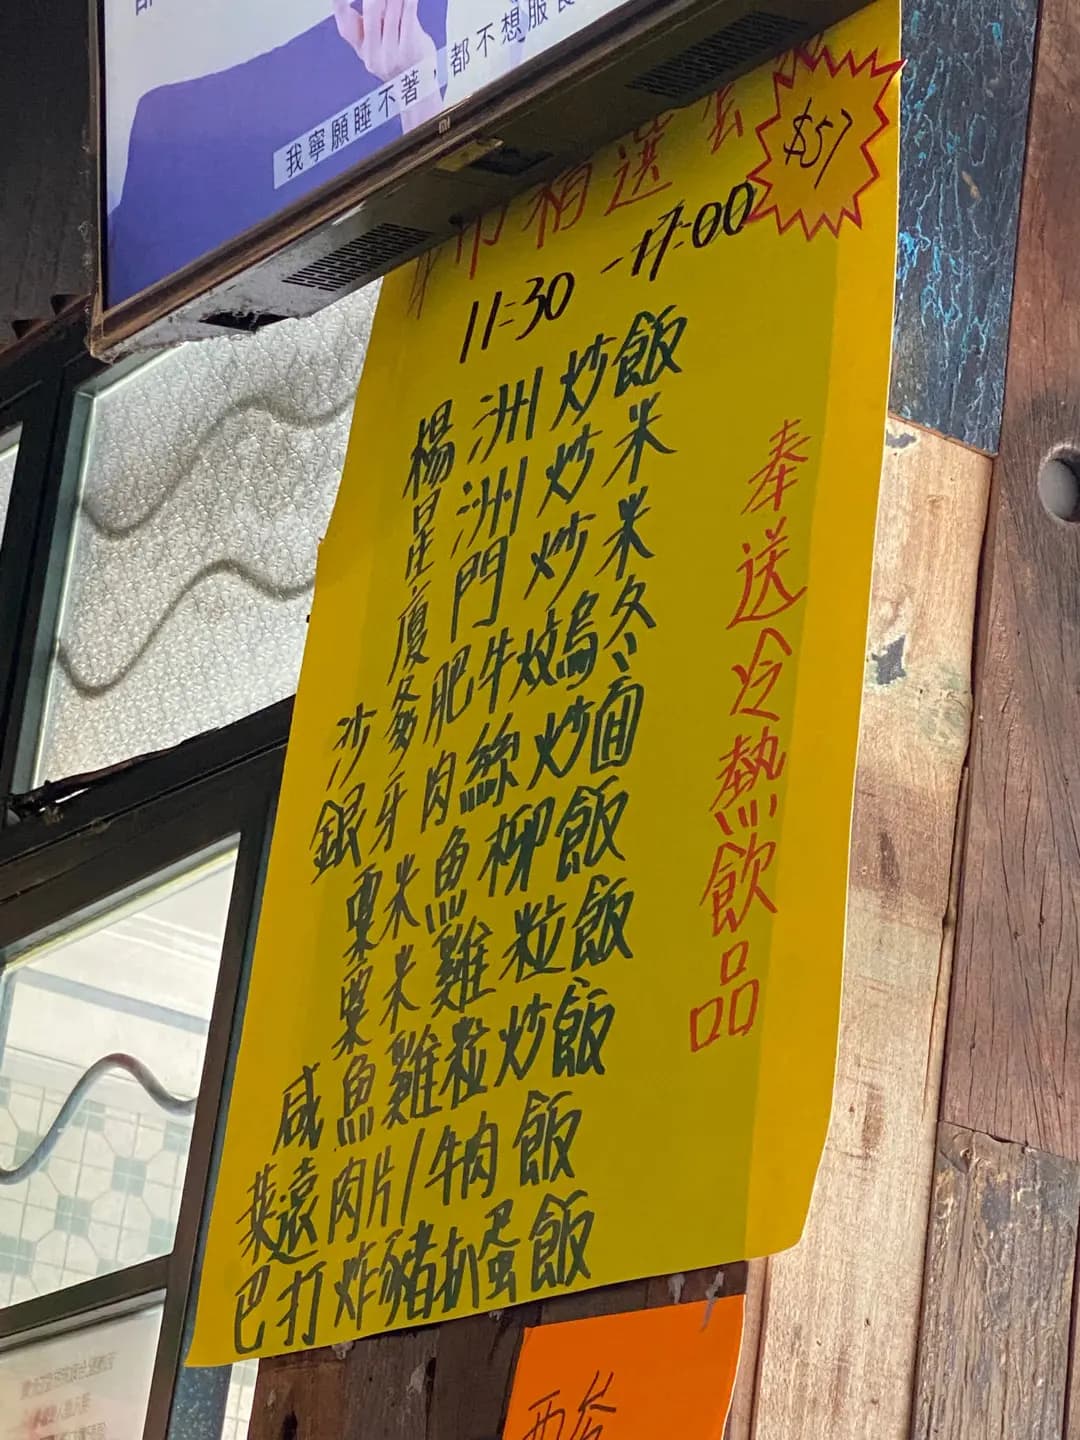 我寧願睡不著，都不想服食
市精選套
$57
11:30 - 17:00
楊洲炒飯
星洲炒米
廈門炒米
沙爹肥牛炆烏冬
銀牙肉絲炒面
粟米魚柳飯
粟米雞粒飯
咸魚雞粒炒飯
菜遠肉片/牛肉飯
巴打炸豬扒蛋飯
奉送冷熱飲品
西谷